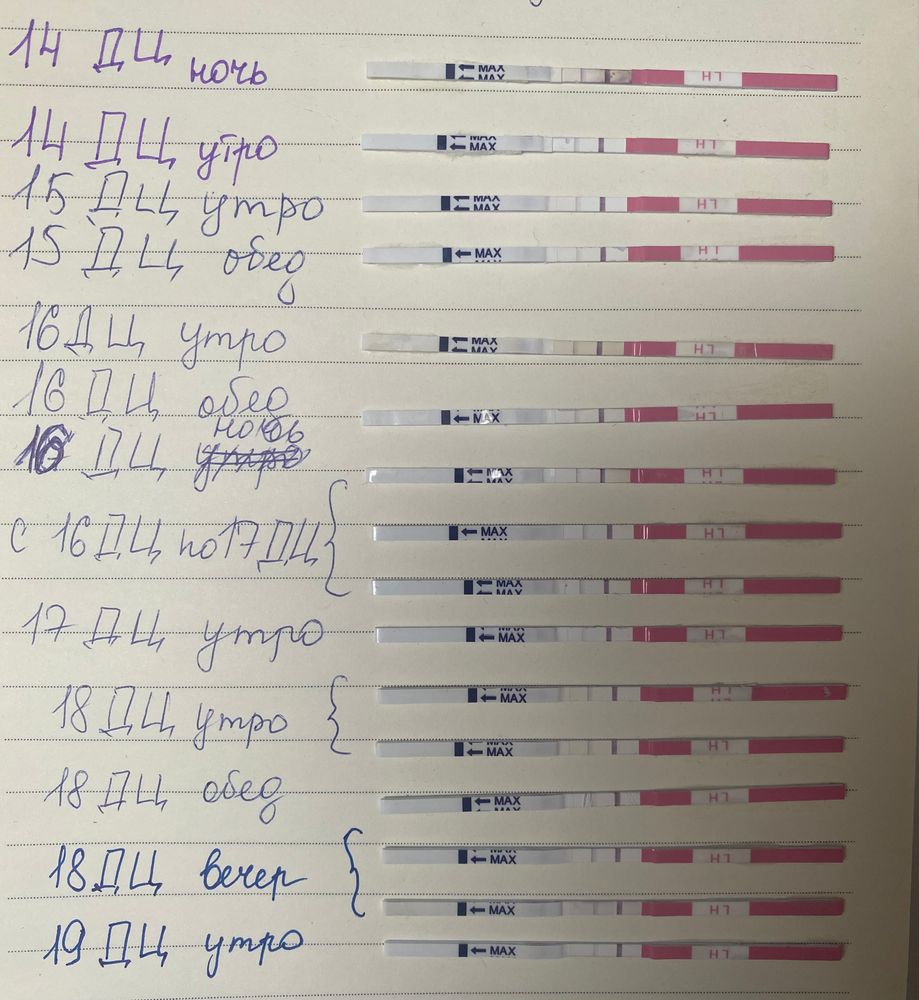 14 ДЦ ночь
MAX
MAX
LH
14 ДЦ утро
MAX
LH
15 ДЦ утро
MAX
MAX
LH
15 ДЦ обед
MAX
LH
16 ДЦ утро
MAX
MAX
LH
16 ДЦ обед
MAX
LH
ночь
16 ДЦ
MAX
MAX
LH
с 16 ДЦ по 17 ДЦ
MAX
LH
MAX
MAX
LH
17 ДЦ утро
MAX
LH
18 ДЦ утро
MAX
MAX
LH
MAX
MAX
LH
18 ДЦ обед
MAX
LH
18 ДЦ вечер
MAX
MAX
LH
MAX
LH
19 ДЦ утро
MAX
LH